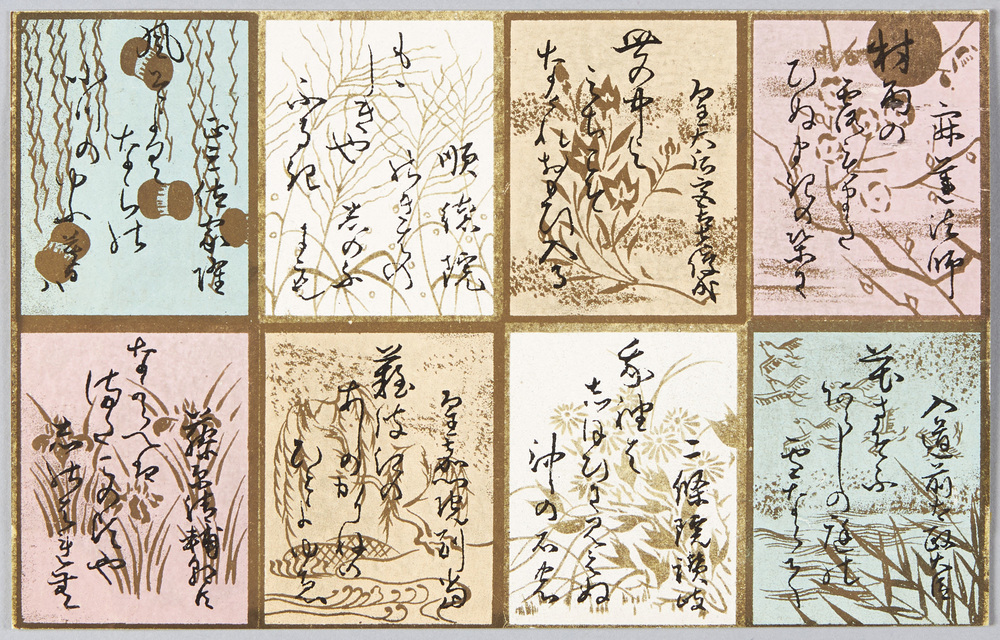 寂蓮法師
村雨の
露もまた
ひぬまきの葉に
皇太后宮大夫俊成
世の中よ
みちこそ
なけれおもひ入る
順徳院
もゝしきや
ふるき
のきはの
しのふ
にも
家隆
風そよく
ならの
小川の夕くれは
入道前太政大臣
花さそふ
あらしの庭の
雪ならて
二條院讃岐
我袖は
しほひにみえぬ
沖の石の
皇嘉門院別当
難波江の
あしのかりねの
ひとよゆゑ
藤原清輔朝臣
なからへは
またこの頃や
しのはれむ